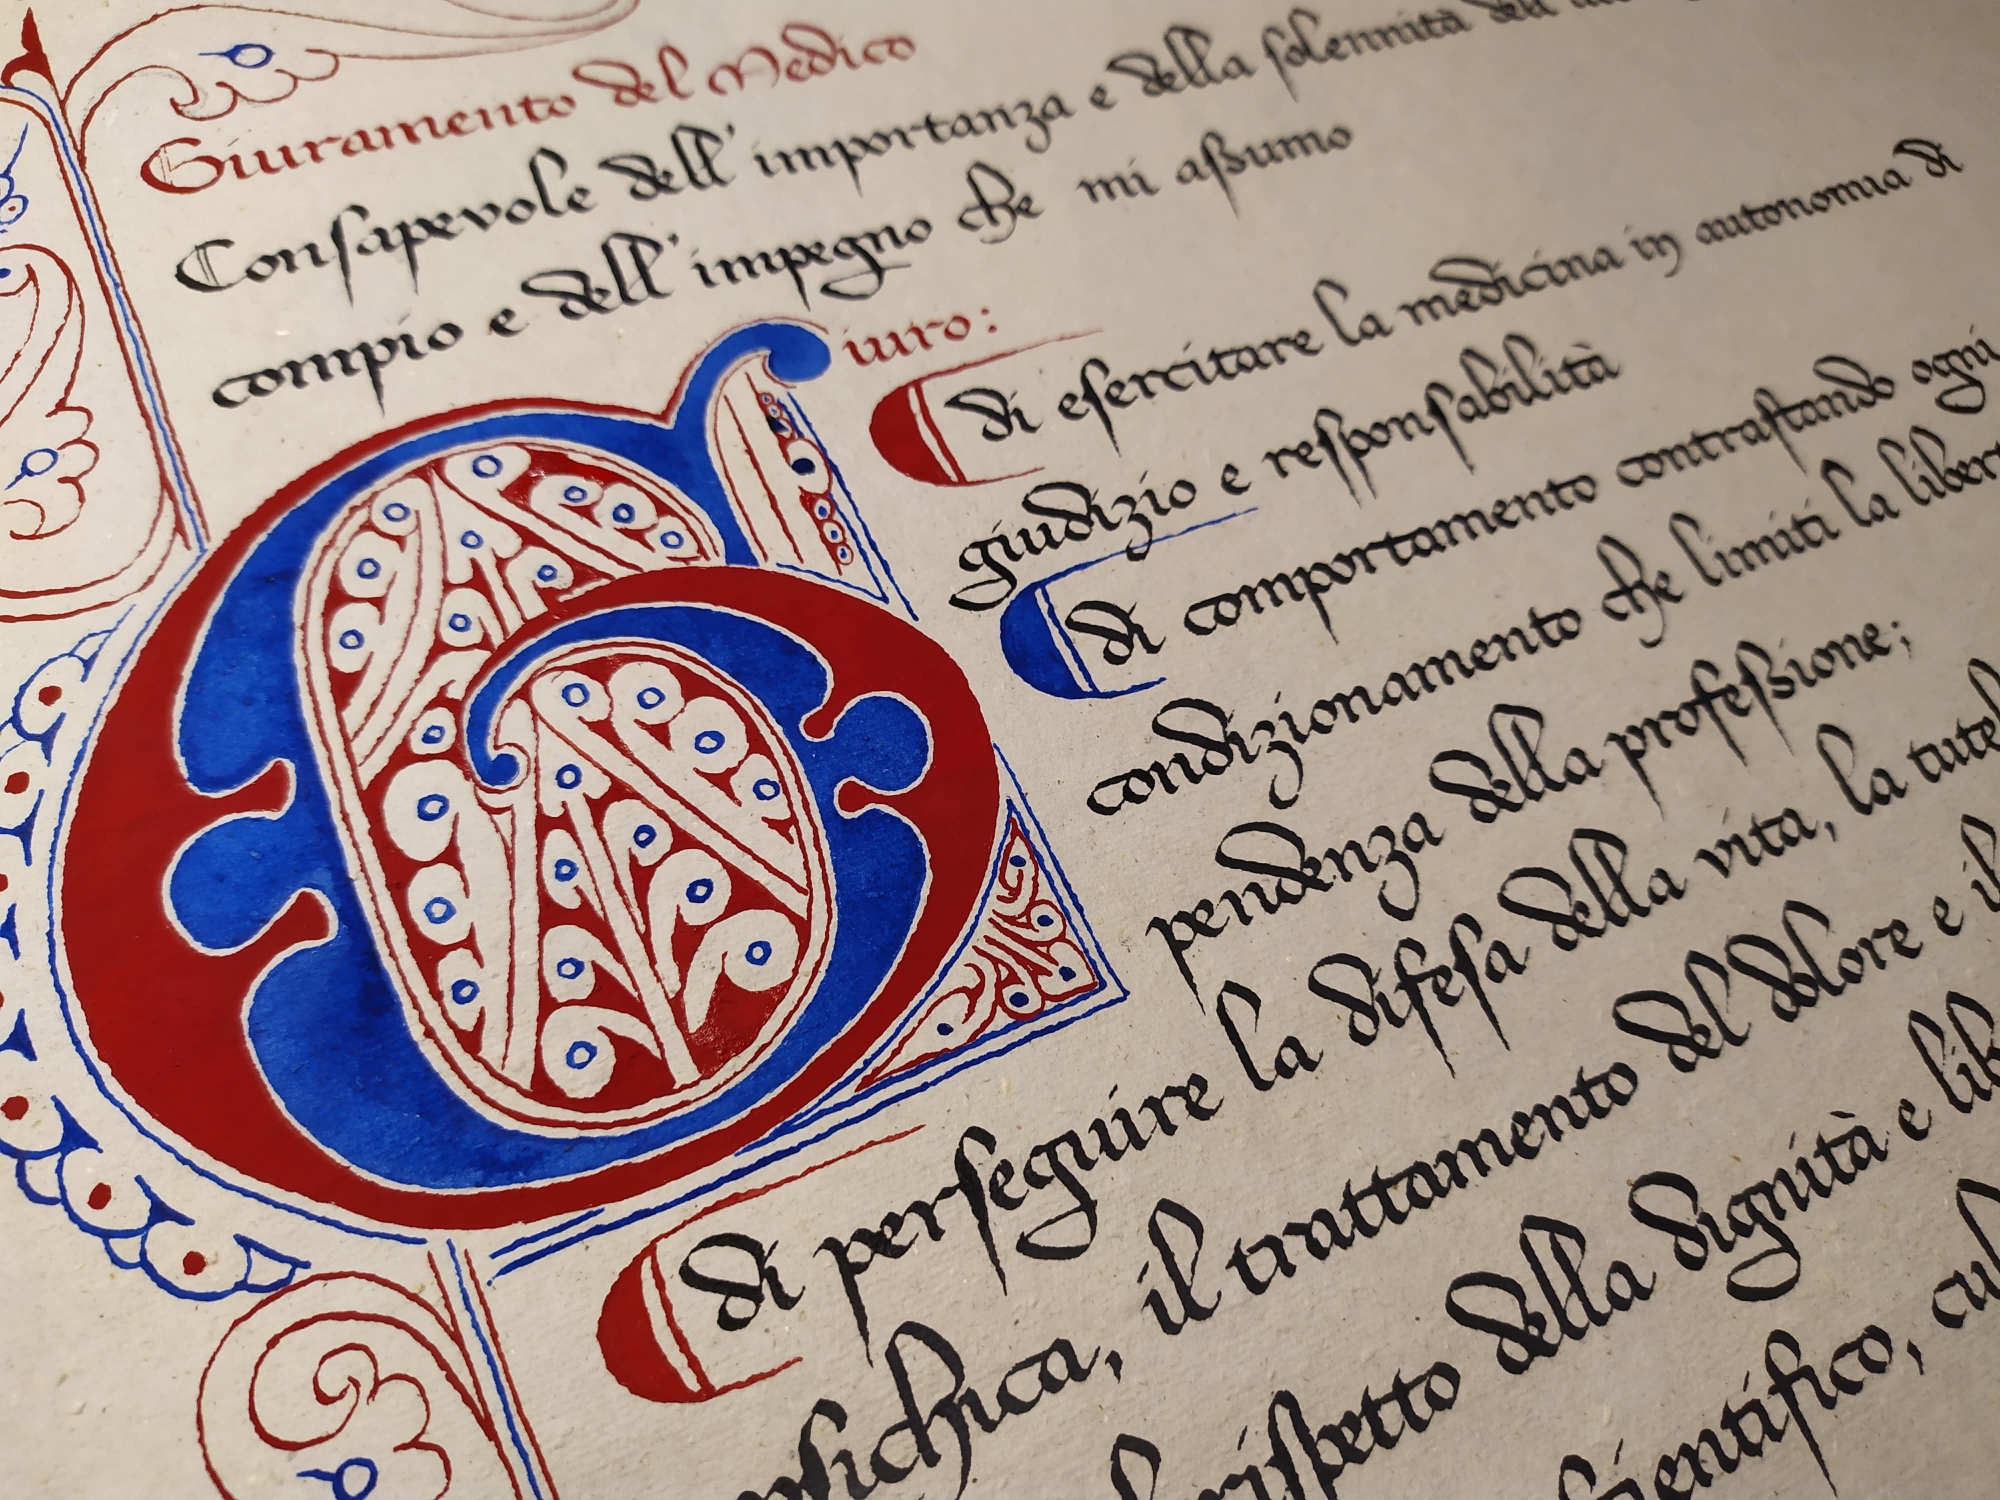 Giuramento del Medico
Consapevole dell'importanza e della solennità dell'
compio e dell'impegno che mi aſsumo
Giuro:
di esercitare la medicina in autonomia di
giudizio e responsabilità
di comportamento contrastando ogni
condizionamento che limiti la libert
pendenza della profeſsione;
di perseguire la difesa della vita, la tutel
psichica, il trattamento del dolore e il
rispetto della dignità e lib
scientifico, cul